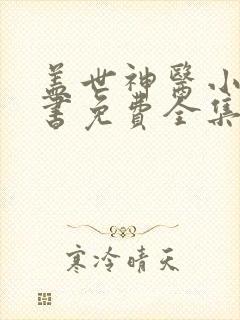 盖世神醫小
書免費全集
寒冷晴天